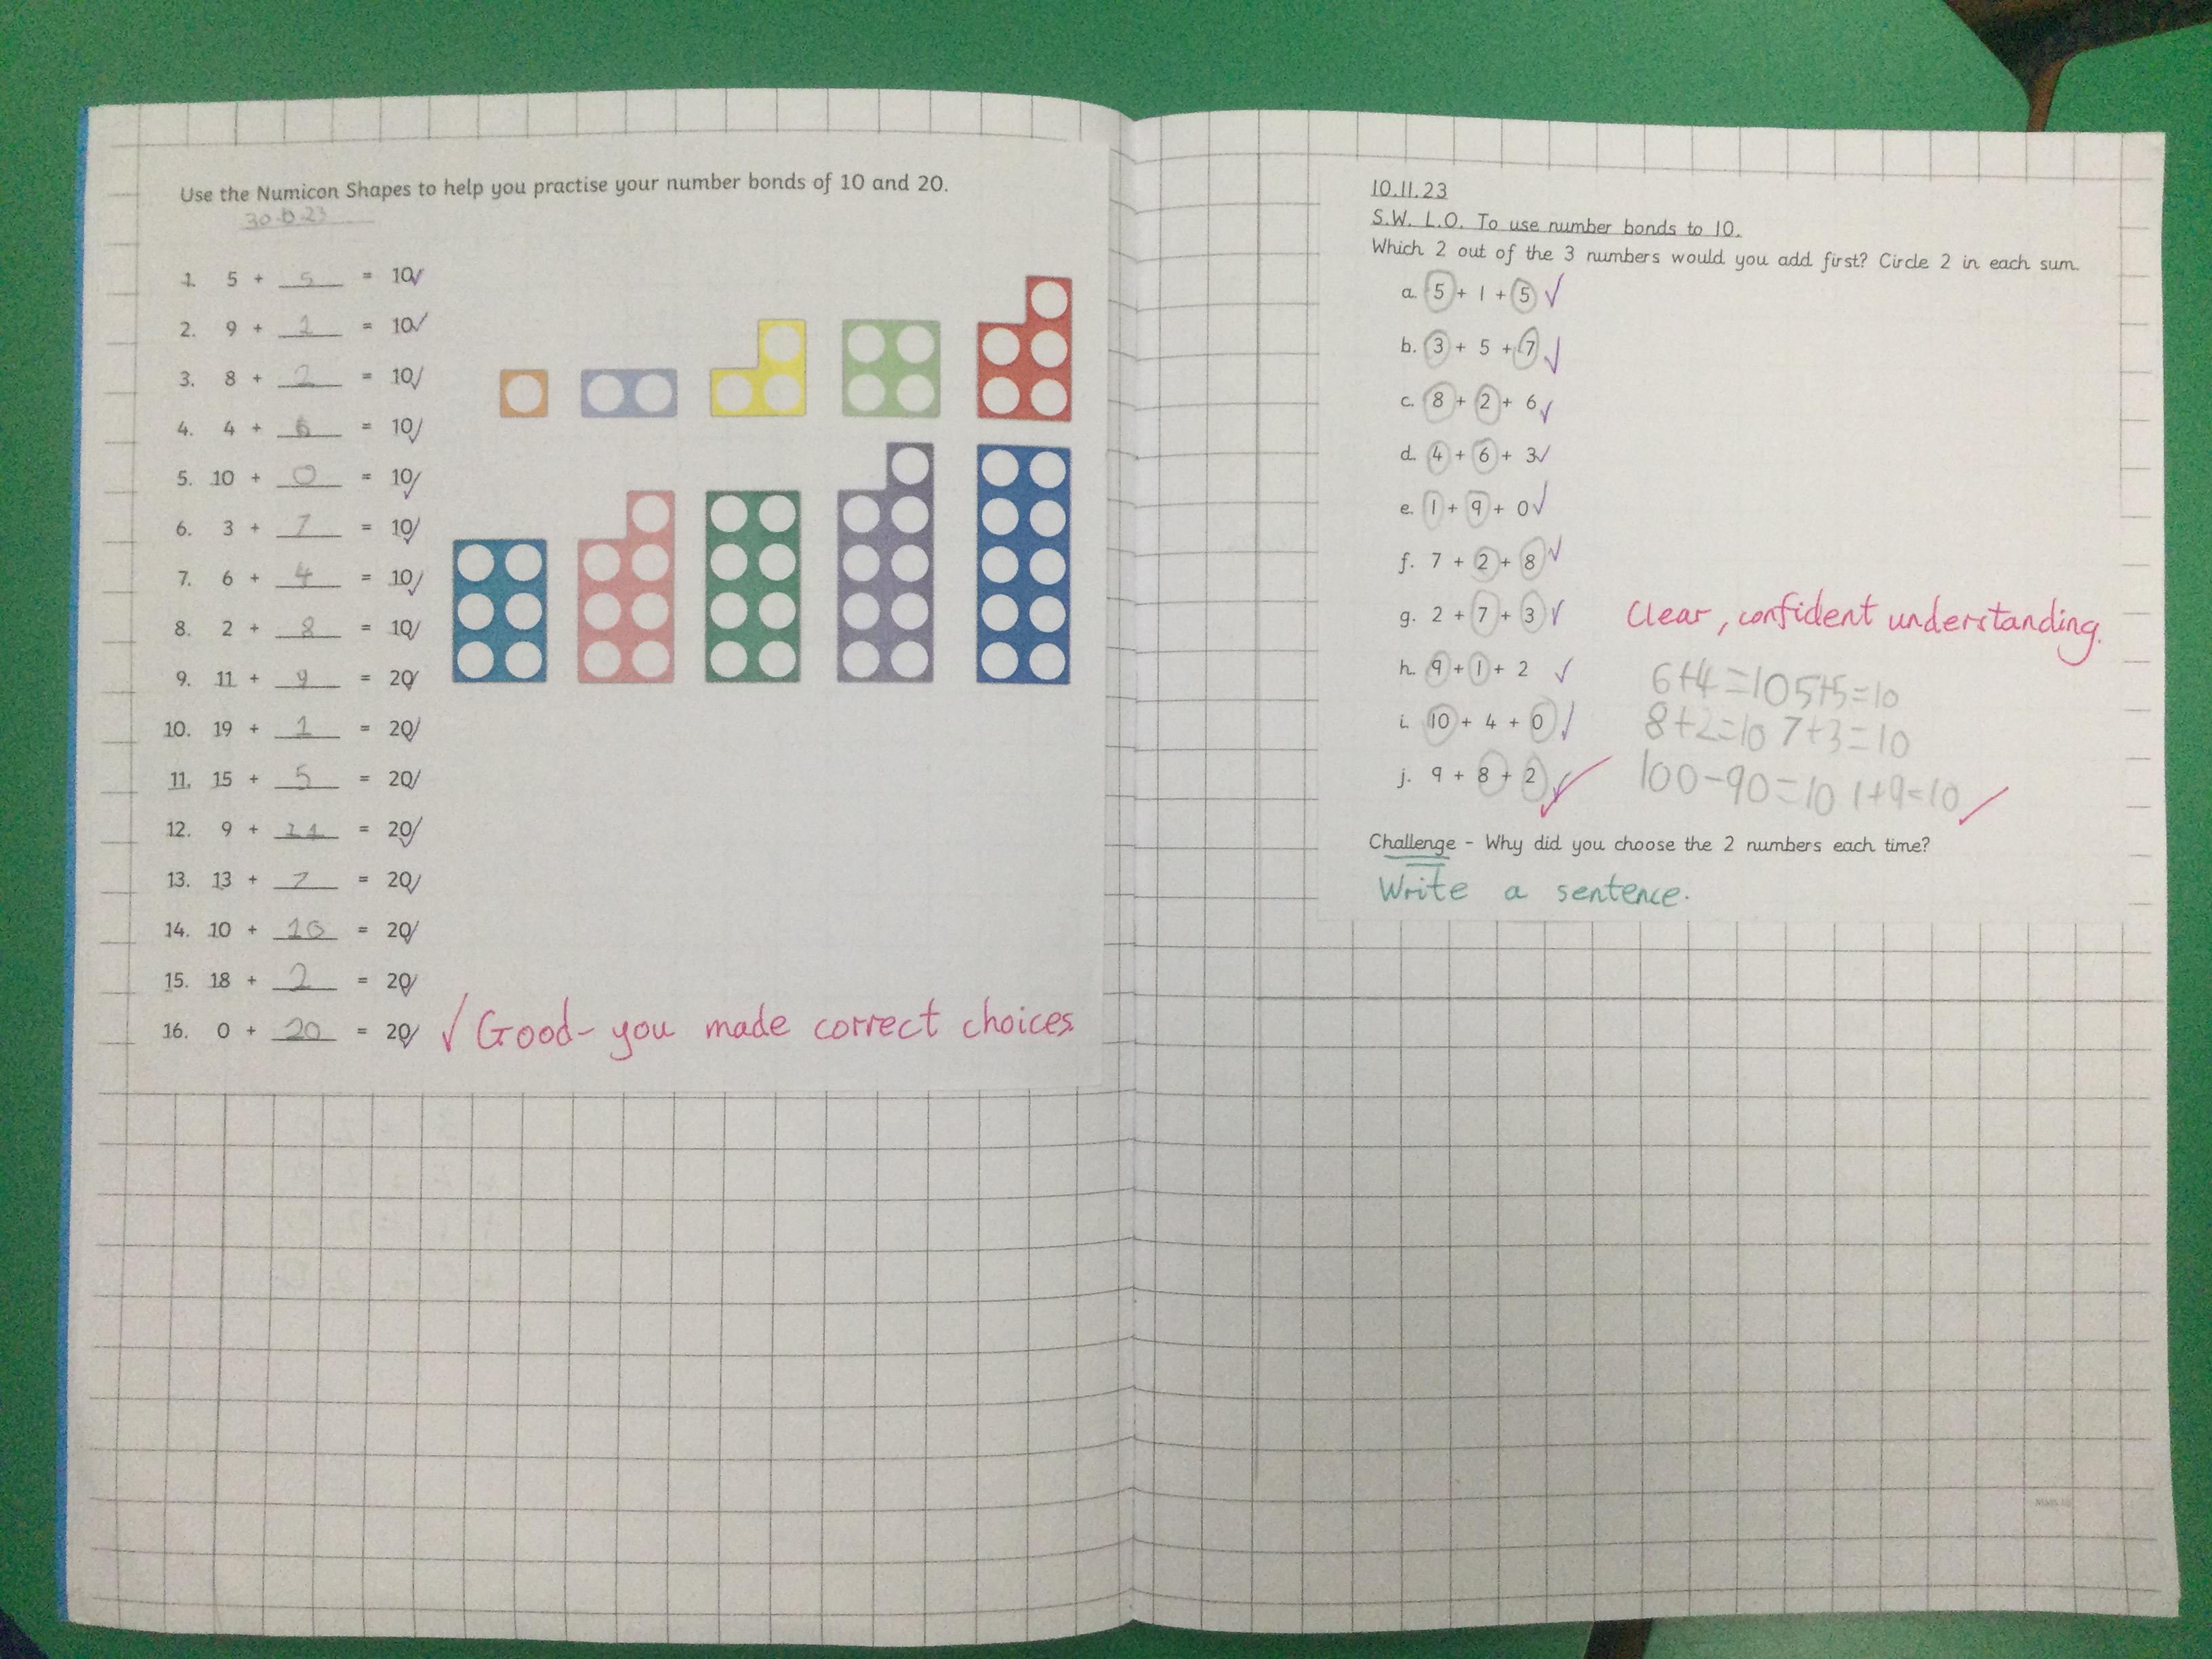 Use the Numicon Shapes to help you practise your number bonds of 10 and 20.
1. 5 + 5 = 10
2. 9 + 1 = 10
3. 8 + 2 = 10
4. 4 + 6 = 10
5. 10 + 0 = 10
6. 3 + 7 = 10
7. 6 + 4 = 10
8. 2 + 8 = 10
9. 11 + 9 = 20
10. 19 + 1 = 20
11. 15 + 5 = 20
12. 9 + 11 = 20
13. 13 + 7 = 20
14. 10 + 10 = 20
15. 18 + 2 = 20
16. 0 + 20 = 20
✓ Good- you made correct choices.
10.11.23
S.W. L.O. To use number bonds to 10.
Which 2 out of the 3 numbers would you add first? Circle 2 in each sum.
a. 5 + 1 + 5
b. 3 + 5 + 7
c. 8 + 2 + 6
d. 4 + 6 + 3
e. 1 + 9 + 0
f. 7 + 2 + 8
g. 2 + 7 + 3
Clear, confident understanding.
h. 9 + 1 + 2
6+4=10 5+5=10
i. 10 + 4 + 0
8+2=10 7+3=10
j. 9 + 8 + 2
100-90=10 1+9=10
Challenge - Why did you choose the 2 numbers each time?
Write a sentence.